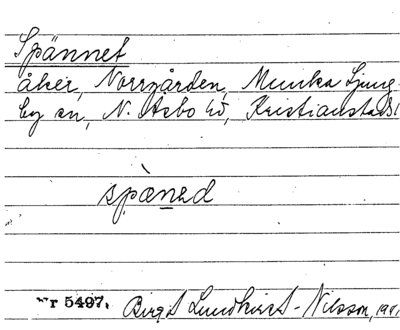 Spännet
åker, Norrgården, Munka Ljung-
by sn, N. Åsbo hd, Kristianstads l
spæ̀nəd
Nr 5497. Birgit Lundkvist-Nilsson, 1941